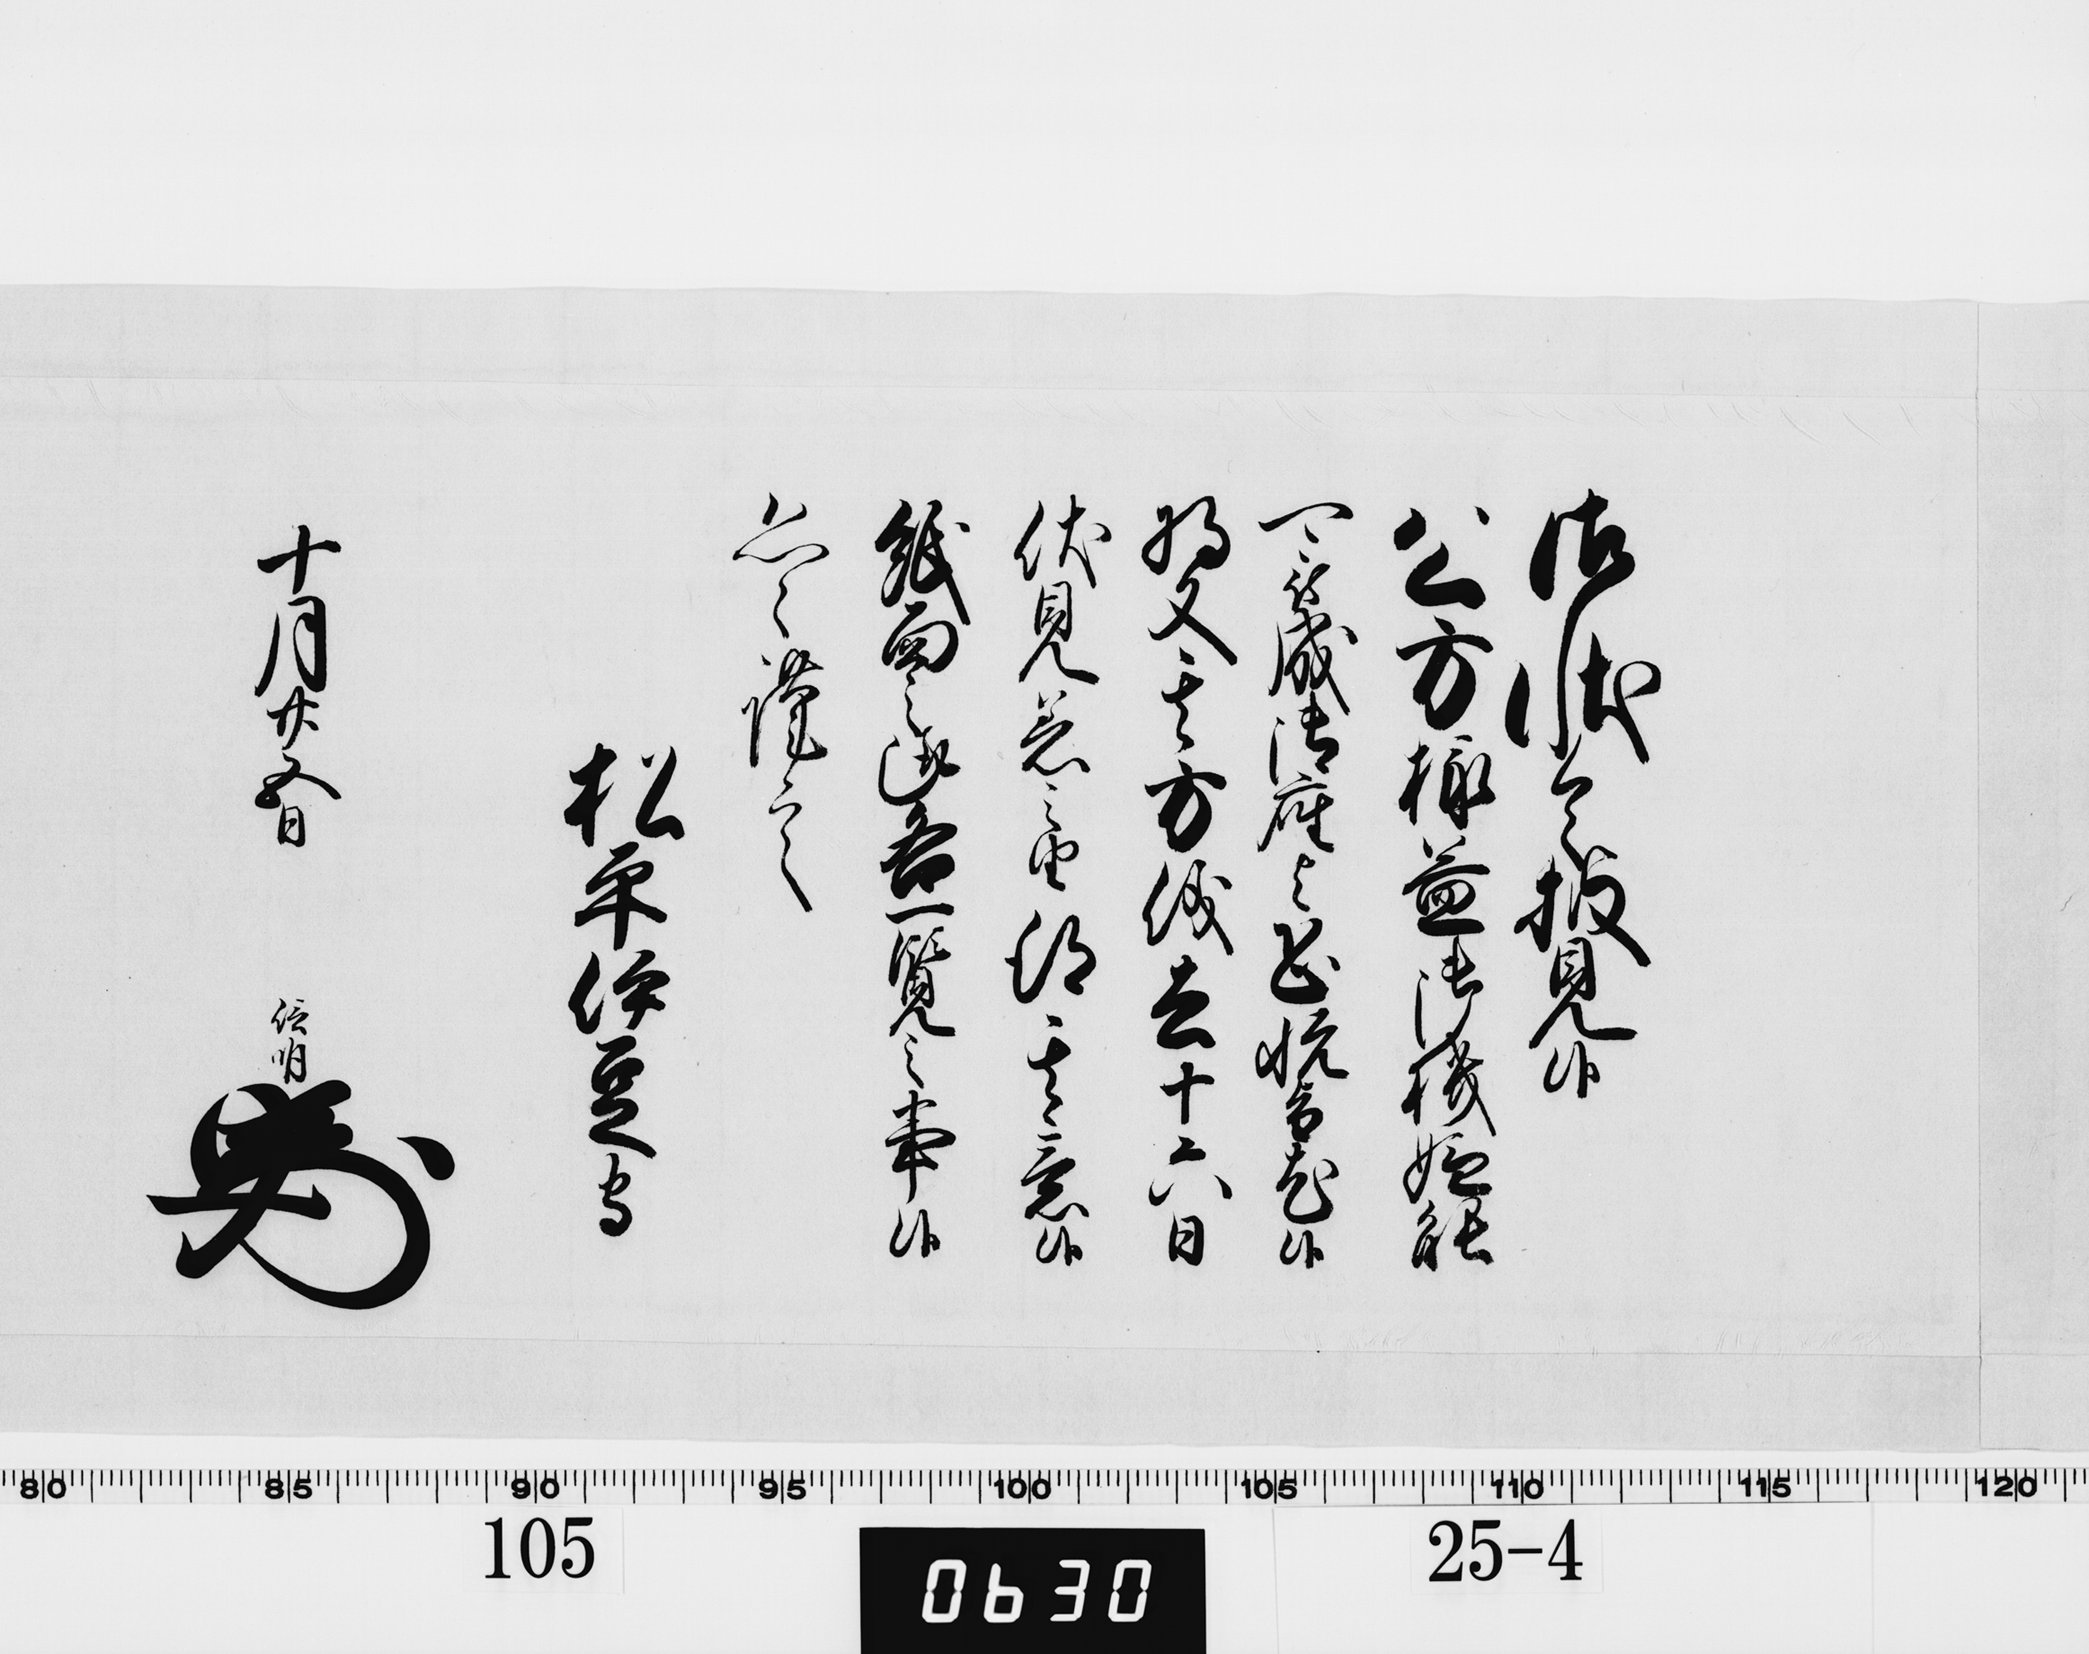 御状令披見候
公方様益御機嫌能
可被成御座与恐悦旨尤候
将又其方儀去十六日
伏見着之由得其意候
紙面之趣各一覧之事候
恐々謹言
松平伊豆守
十月廿五日
信明
105
0630
25-4
80 85 90 95 100 105 110 115 120